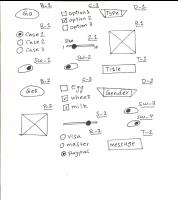 B-1 C-3 D-1
Go option 1 Type
R-1 option 2 P-1
Case 1 option 3
Case 2 S-1
Case 3
SW-1 SW-2 T-1
Title
B-2 C-3 D-2
Get Egg Gender
P-2 wheat
milk SW-3
S-2 SW-4
R-3 T-2
visa
master message
Paypal